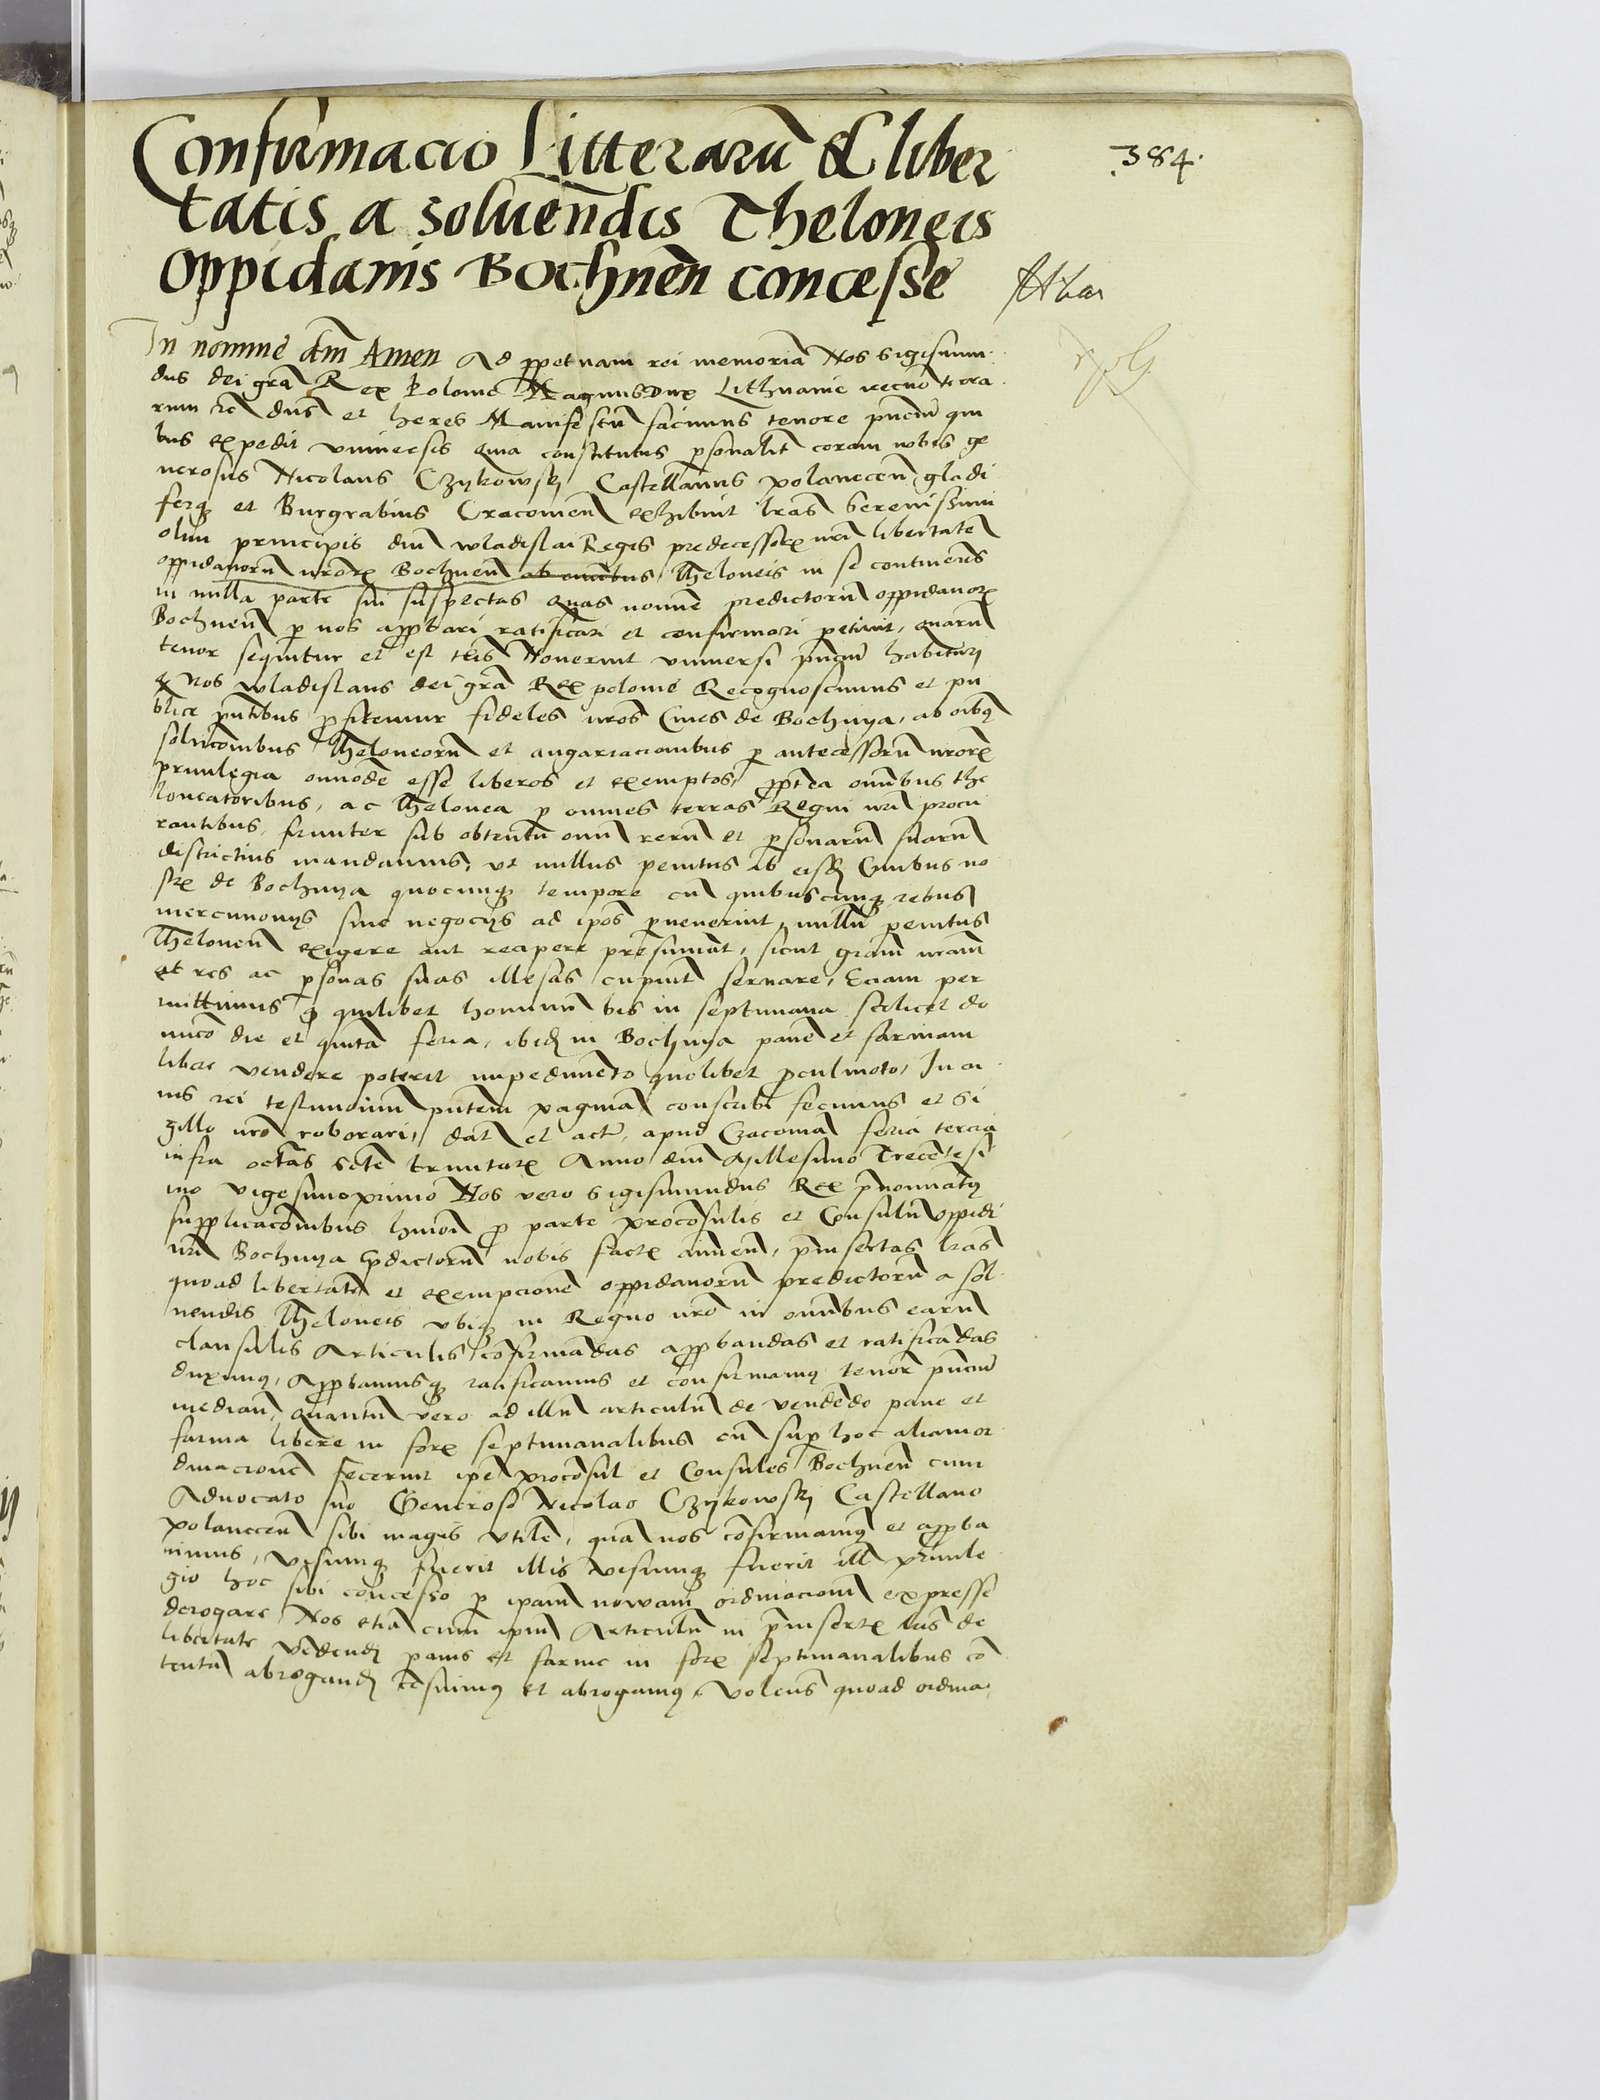 384.
Confirmacio Litterarũ & liber
tatis a solvẽndis Theloneis
Oppidanis Bochnẽn concesse
In nomine dñi Amen Ad ppetuam rei memoriã Nos Sigismun
dus dei grã Rex Polonie Magnus Dux Lithuanie necnõ terra
rum ẽ dñs et heres Manifestũ facimus tenore pñciũ qui
bus expedit vniuersis Quia constitutus psonalit coram nobis ge
nerosus Nicolaus Czykowskj Castellanus polanecen gladi
ferq et Burgrabius Cracouien exhibuit lras Serenissimi
olim principis dñi wladislai Regis predecessor nri libertatẽ
oppidanorũ nror Bochnen ab omibus Theloneis in se continẽtes
in nulla parte sui suspectas Quas nomine predictorũ oppidanor
Bochnen p nos approbari ratificari et confirmari petiuit, quarũ
tenor sequitur et est talis Nouerint vniuersi pñciũ habituri
Nos wladislaus dei grã Rex polonie Recognoscimus et pu
blice pñtibus profitemur fideles nros Ciues de Bochnya, ab oibq
solucõibus Theloneorũ et angariacionibus p antecessorũ nror
priuilegia omode esse liberos et exemptos, ppterea omnibus the
loneatoribus, ac Thelonea p omnes terras Regni nri procu
rantibus, firmiter sub obtentu omi rerũ et psonarũ suarũ
districtius mandamus, vt nullus penitus ab eisd Ciuibus no
stris de Bochnya quocunq tempore cũ quibuscunq rebus
mercimonijs siue negocijs ad ipos puenerint, nullũ penitus
Theloneũ exigere aut recipere presumãt, sicut grãm nrãm
et res ac psonas suas illesas cupiũt seruare, Eciam per
mittimus q quilibet hominũ bis in septimana scilicet do
nico die et quinta feria, ibid in Bochnya panẽ et farinam
libere vendere poterit impedimẽto quolibet proculmoto, In cu
ius rei testimoniũ pñtem paginã conscribi fecimus et Si
gillo nro roborari, dat et actũ, apud Cracouiã feria tercia
infra octãs Scte trinitat Anno dñi Millesimo Trecẽtesi
mo vigesimoprimo Nos vero Sigismundus Rex pñominatq
supplicacõibus hmoi p parte proconsulis et Consulũ oppidi
nri Bochnya pdictorũ nobis fact annuen, pinsertas lras
quoad libertatẽ et exempcionẽ oppidanorũ predictorũ a sol
uendis Theloneis vbiq in Regno nro in omibus earũ
clausulis Articulis, cõfirmãdas approbandas et ratificãdas
duximq, Approbamusq ratificamus et confirmamq tenor pñciũ
mediañ, Quantũ vero ad illũ articulũ de vendẽdo pane et
farina libere in foris septimanalibus cũ sup hoc aliam or
dinacionẽ fecerint ipi procõsul et Consules Bochnen cum
Aduocato suo Generoso Nicolao Czykowskj Castellano
polanecen sibi magis vtilẽ, quã nos cõfirmamq et approba
uimus, visumq fuerit illis visumq fuerit ill priuile
gio hoc sibi concesso p ipam nowam ordinacionẽ expresse
derogare Nos etiã eum ipm Articulũ in pinsert lris de
libertate vẽdendi panis et farine in foris septimanalibus cõ
tentũ abrogandũ cẽsuimq et abrogamq, volens quoad ordina